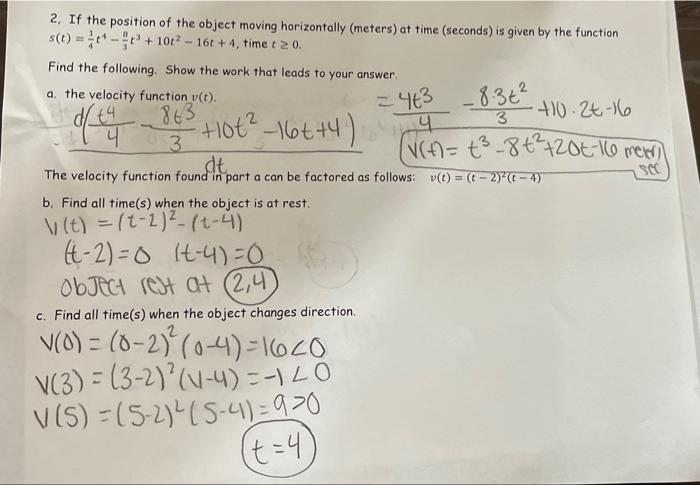 2, If the position of the object moving horizontally (meters) at time (seconds) is given by the function
s(t) = 1/4 t⁴ − 8/3 t³ + 10t² − 16t + 4, time t ≥ 0.
Find the following. Show the work that leads to your answer.
a. the velocity function v(t).
d(t⁴/4 - 8t³/3 + 10t² - 16t + 4)/dt
= 4t³/4 - 8·3t²/3 + 10·2t - 16
V(t) = t³ - 8t² + 20t - 16 meter/sec
The velocity function found in part a can be factored as follows: v(t) = (t − 2)²(t − 4)
b. Find all time(s) when the object is at rest.
V(t) = (t-2)² - (t-4)
(t-2) = 0 (t-4) = 0
Object rest at (2,4)
c. Find all time(s) when the object changes direction.
V(0) = (0-2)² (0-4) = 16 < 0
V(3) = (3-2)² (V-4) = -1 < 0
V(5) = (5-2)² (5-4) = 9 > 0
t = 4